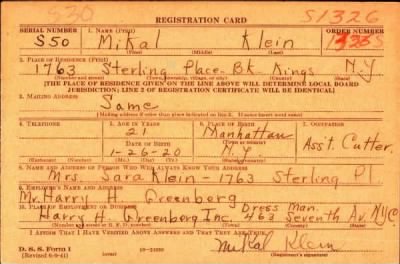 930
S1326
REGISTRATION CARD
SERIAL NUMBER 1. NAME (Print) ORDER NUMBER
S50 Mikal Klein
(First) (Middle) (Last)
2. PLACE OF RESIDENCE (Print)
1763 Sterling Place - Bk. Kings N.Y
(Number and street) (Town, township, village, or city) (County) (State)
[THE PLACE OF RESIDENCE GIVEN ON THE LINE ABOVE WILL DETERMINE LOCAL BOARD
JURISDICTION; LINE 2 OF REGISTRATION CERTIFICATE WILL BE IDENTICAL]
3. MAILING ADDRESS
Same
[Mailing address if other than place indicated on line 2. If same insert word same]
4. TELEPHONE 5. AGE IN YEARS 6. PLACE OF BIRTH 7. OCCUPATION
21 Manhattan
DATE OF BIRTH (Town or county) Ass't. Cutter.
1-26-20 N.Y.
(Exchange) (Number) (Mo.) (Day) (Yr.) (State or country)
8. NAME AND ADDRESS OF PERSON WHO WILL ALWAYS KNOW YOUR ADDRESS
Mrs. Sara Klein - 1763 Sterling Pl.
9. EMPLOYER'S NAME AND ADDRESS
Mr. Harry H. Greenberg
10. PLACE OF EMPLOYMENT OR BUSINESS Dress Man.
Harry H. Greenberg Inc. 463 Seventh Av. NYC.
(Number and street or R. F. D. number) (Town) (County) (State)
I AFFIRM THAT I HAVE VERIFIED ABOVE ANSWERS AND THAT THEY ARE TRUE.
D. S. S. Form 1
(Revised 6-9-41) Mikal Klein